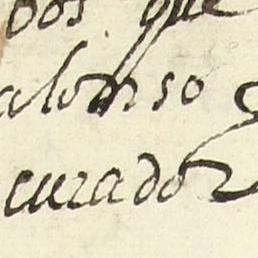 dos que
alonso
curador